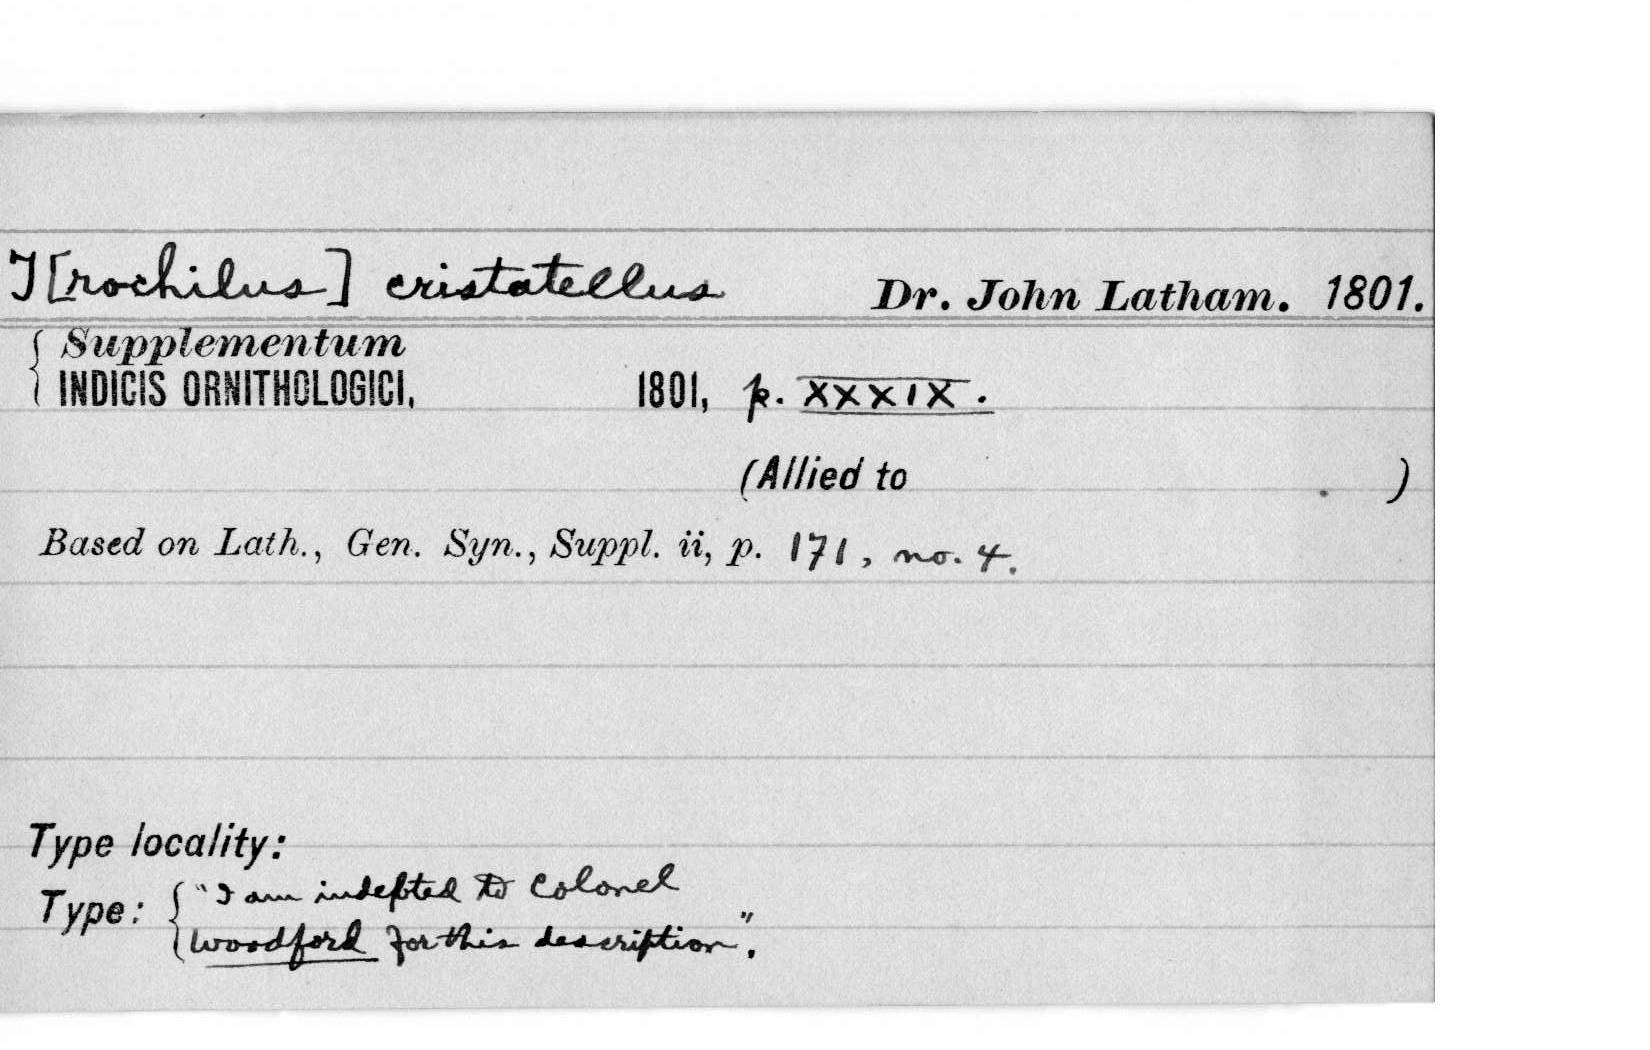 T[rochilus] cristatellus Dr. John Latham. 1801.
{ Supplementum
INDICIS ORNITHOLOGICI, 1801, p. XXXIX.
(Allied to )
Based on Lath., Gen. Syn., Suppl. ii, p. 171, no. 4.
Type locality:
Type: { "I am indebted to Colonel
Woodford for this description".